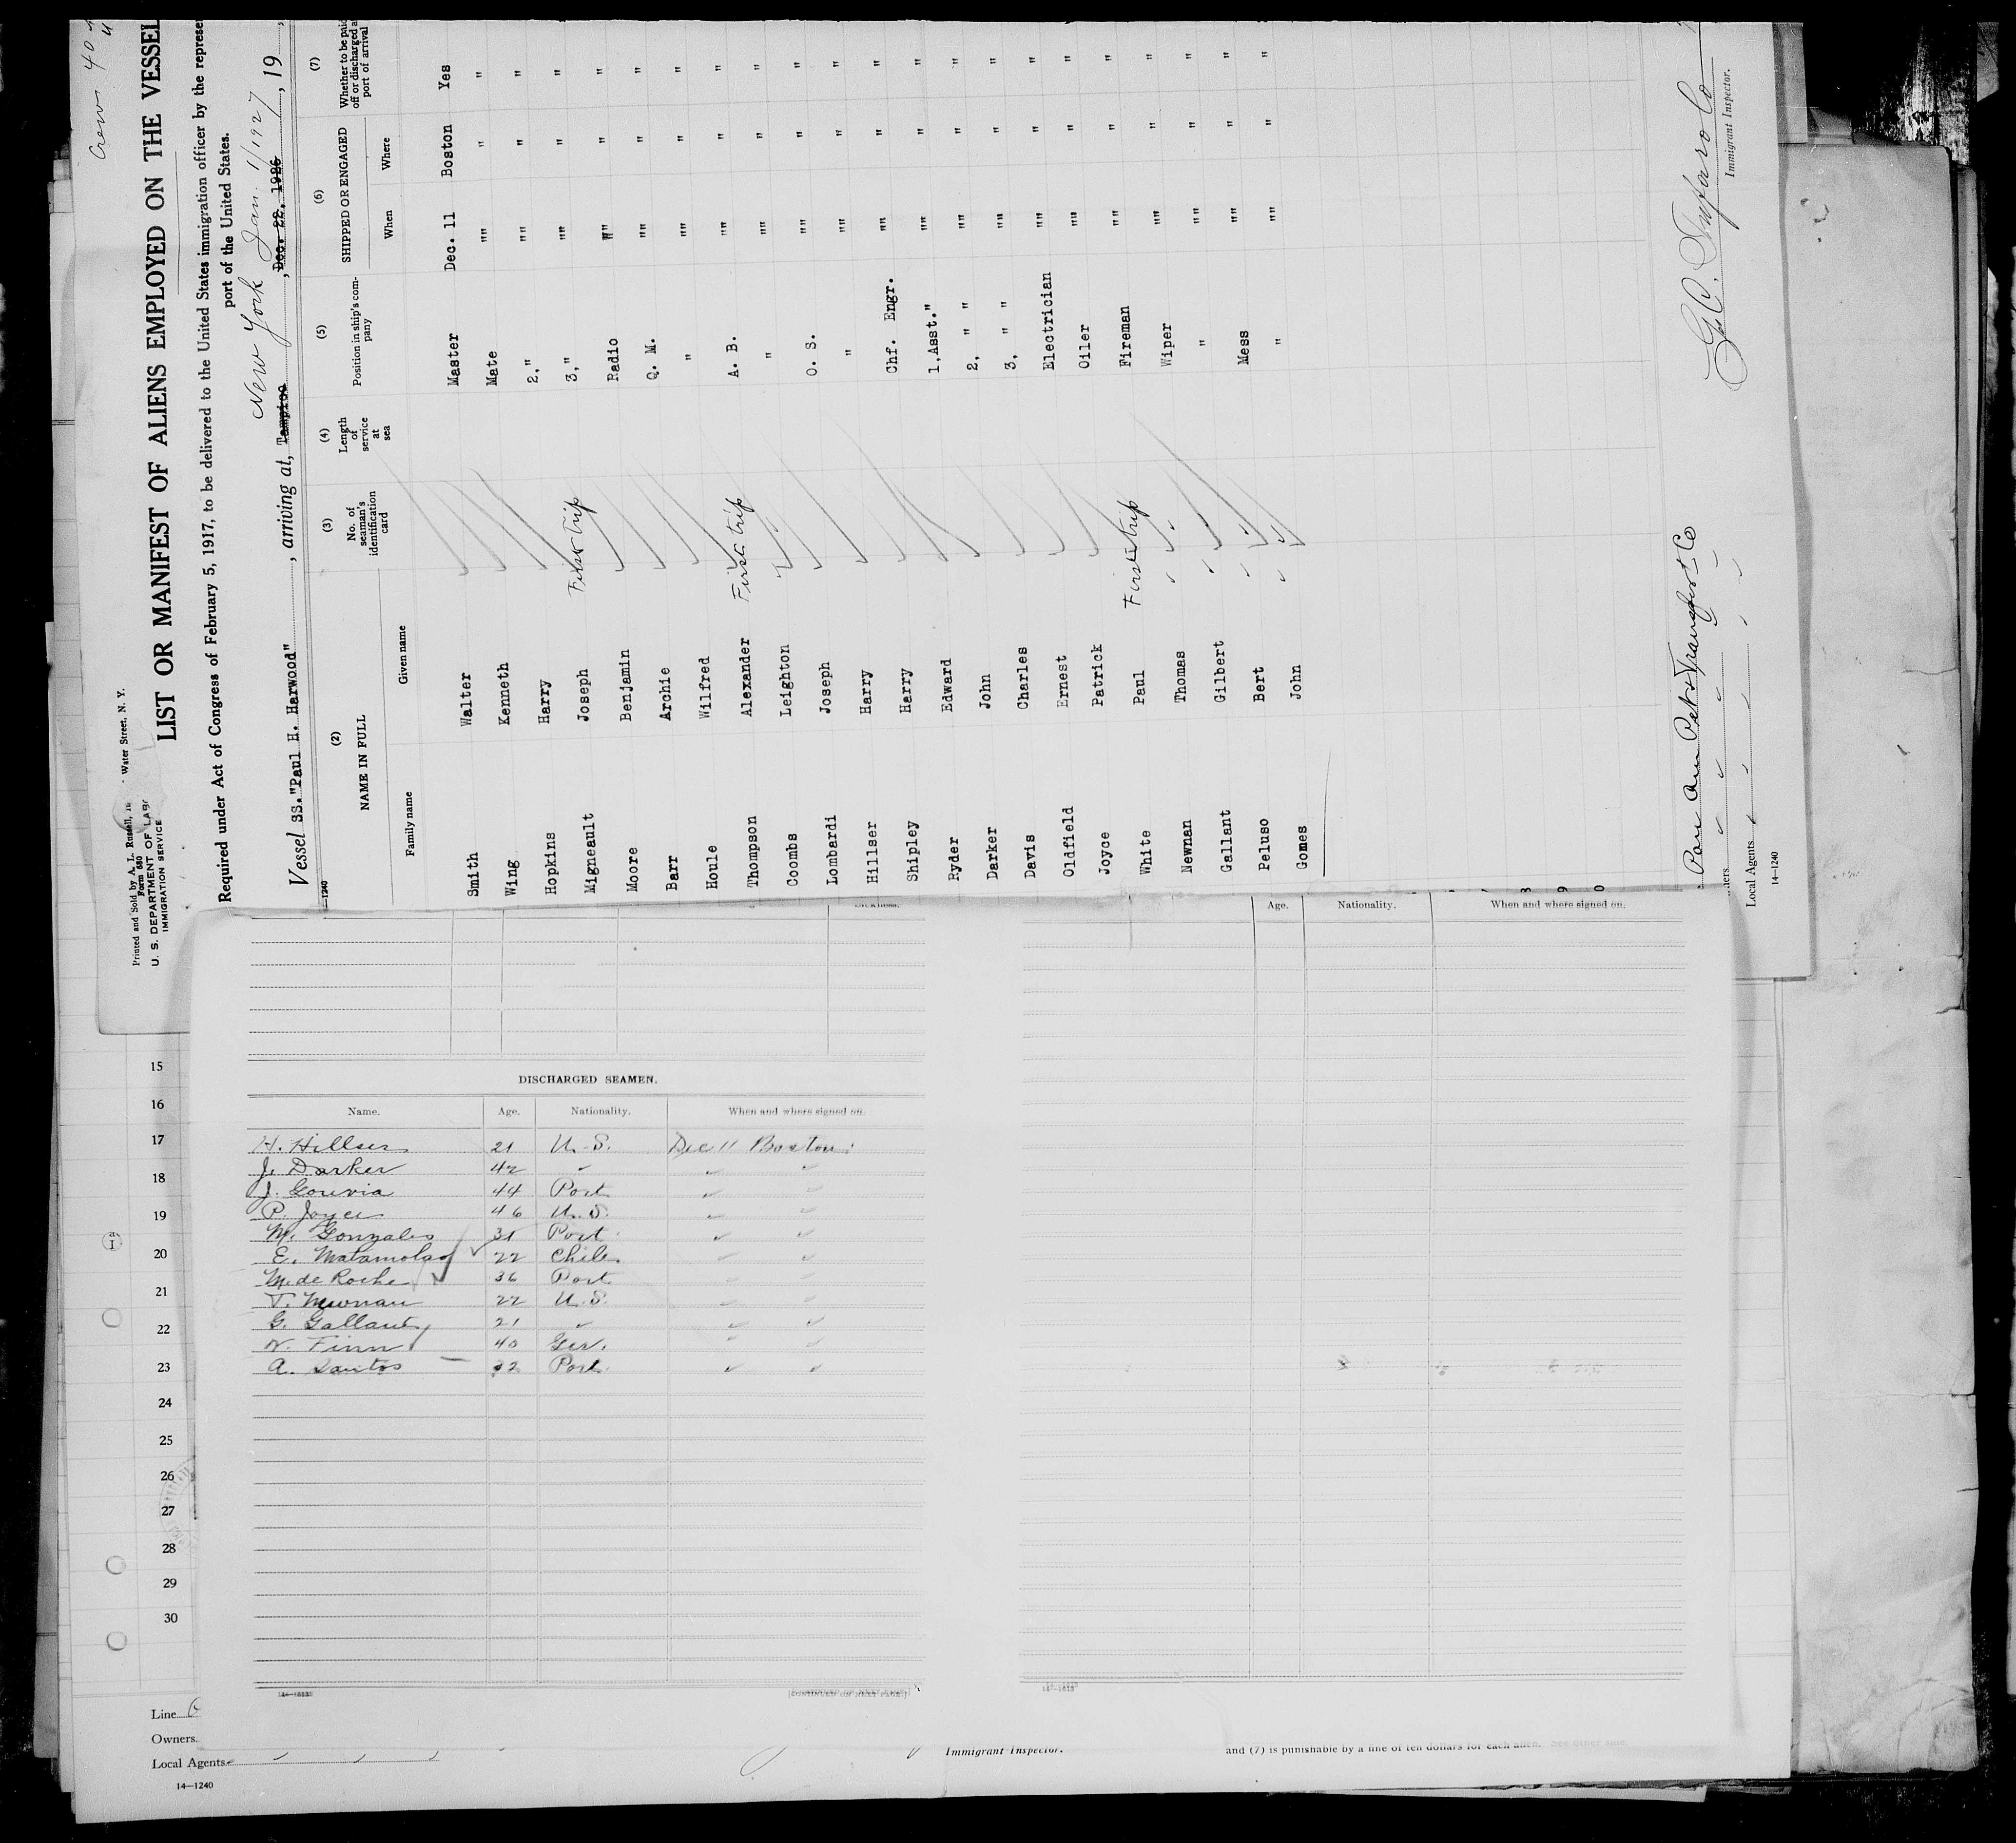 Crews 40
Printed and Sold by A. L. Russell, Water Street, N. Y.
Form 680
U. S. DEPARTMENT OF LABOR
IMMIGRATION SERVICE
LIST OR MANIFEST OF ALIENS EMPLOYED ON THE VESSEL
Required under Act of Congress of February 5, 1917, to be delivered to the United States immigration officer by the represe
port of the United States.
New York Jan. 1/1927
Vessel SS."Paul H. Harwood" , arriving at, Tampico , Dec. 22, 1926 , 19 ,
—1240
(2) (3) (4) (5) (6) (7)
NAME IN FULL No. of seaman's identification card Length of service at sea Position in ship's company SHIPPED OR ENGAGED Whether to be paid off or discharged at port of arrival
Family name Given name When Where
Smith Walter Master Dec. 11 Boston Yes
Wing Kenneth Mate "" " "
Hopkins Harry 2," "" " "
Migneault Joseph First trip 3," "" " "
Moore Benjamin Radio "" " "
Barr Archie Q. M. "" " "
Houle Wilfred " "" " "
Thompson Alexander First trip A. B. "" " "
Coombs Leighton " "" " "
Lombardi Joseph O. S. "" " "
Hillser Harry " "" " "
Shipley Harry Chf. Engr. "" " "
Ryder Edward 1,Asst." "" " "
Darker John 2, " " "" " "
Davis Charles 3, " " "" " "
Oldfield Ernest Electrician "" " "
Joyce Patrick Oiler "" " "
White Paul First trip Fireman "" " "
Newnan Thomas Wiper "" " "
Gallant Gilbert " "" " "
Peluso Bert Mess "" " "
Gomes John " "" " "
Pan Am Pet & Transport Co
Local Agents
14—1240
Immigrant Inspector.
Age. Nationality. When and where signed on.
DISCHARGED SEAMEN.
Name. Age. Nationality. When and where signed on.
H. Hillser 21 U. S. Dec 11 Boston
J. Darker 42 " " "
J. Gouvia 44 Port " "
P. Joyce 46 U. S. " "
M. Gonzales 31 Port " "
E. Matamolas 22 Chile " "
M. de Roche 36 Port " "
T. Newnan 22 U. S. " "
G. Gallant 21 " " "
W. Finn 40 Ger. " "
A. Santos 32 Port. " "
[CONTINUED ON NEXT PAGE.]
15
16
17
18
19
20
21
22
23
24
25
26
27
28
29
30
Line
Owners
Local Agents
14—1240
Immigrant Inspector.
and (7) is punishable by a fine of ten dollars for each alien. See other side